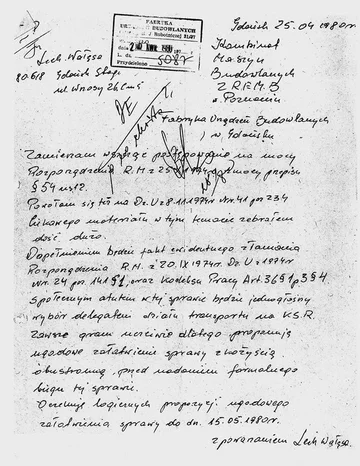 Gdańsk 25.04 1980r
FABRYKA
BUDOWLANYCH
Lech Wałęsa
80618 Gdańsk Stogi
ul Wrzosy 26 C m 5
Kombinat
Maszyn
Budowlanych
ZREMB
w Poznaniu
Fabryka Urządzeń Budowlanych
w Gdańsku
Zamierzam wszcząć postępowanie na mocy
Rozporządzenia R.M z 20
§ 54 ust 2.
Powołam się też na Dz. U z 8.11 1974r nr. 41 poz 234
Ciekawego materiału w tym temacie zebrałem
dość dużo.
Dopełnieniem będzie fakt ewidentnego złamania
Rozporządzenia R.M. z 20.IX 1974r. Dz. U z 1974r
Nr. 24 poz. 141 § 1, oraz Kodeksu Pracy Art. 36 § 1 p 3 § 4
Społecznym atutem w tej sprawie będzie jednogłośny
wybór delegatem działu transportu na K.S.R.
Zawsze gram uczciwie dlatego proponuję
ugodowe załatwienie sprawy z korzyścią
obustronną, przed nadaniem formalnego
biegu tej sprawie.
Oczekuję logicznych propozycji ugodowego
załatwienia sprawy do dn. 15.05.1980r.
z poważaniem Lech Wałęsa